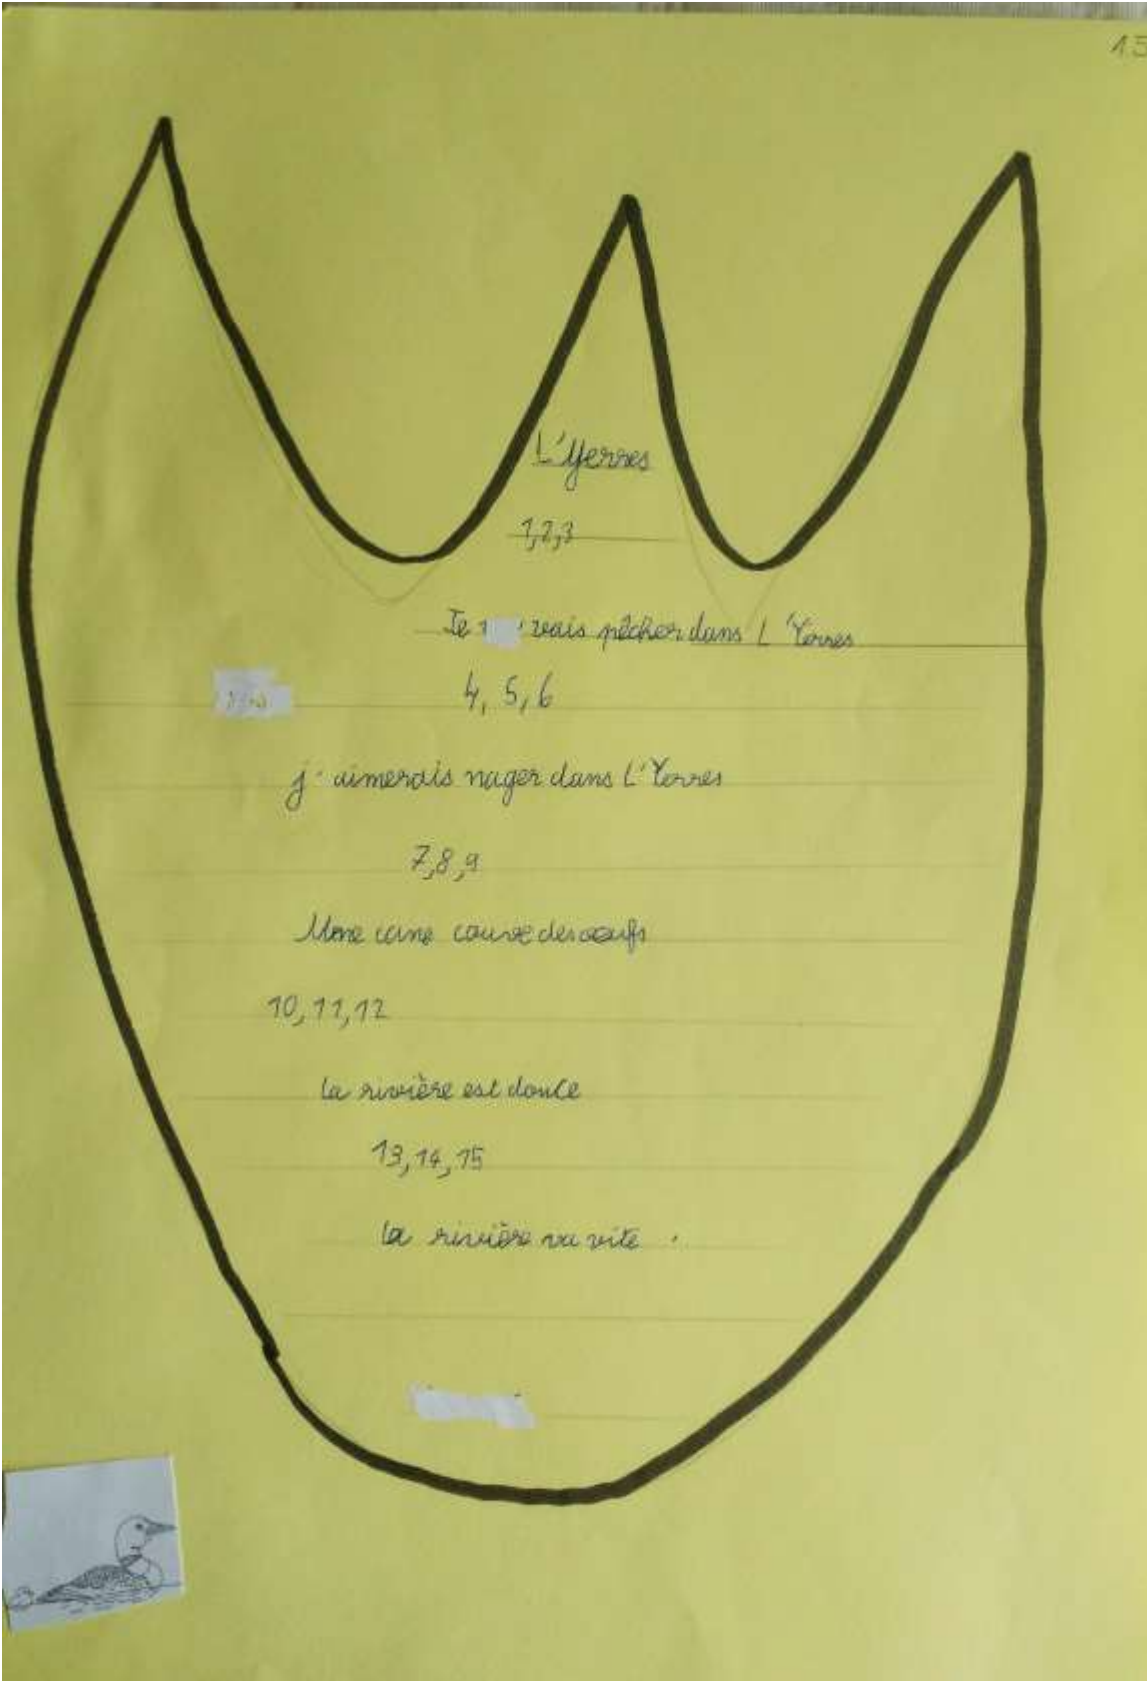 15
L'Yerres
1,2,3
Je vais pêcher dans L'Yerres
4, 5, 6
j'aimerais nager dans L'Yerres
7,8,9
Une cane couve des oeufs
10, 11, 12
la rivière est douce
13, 14, 15
la rivière va vite.